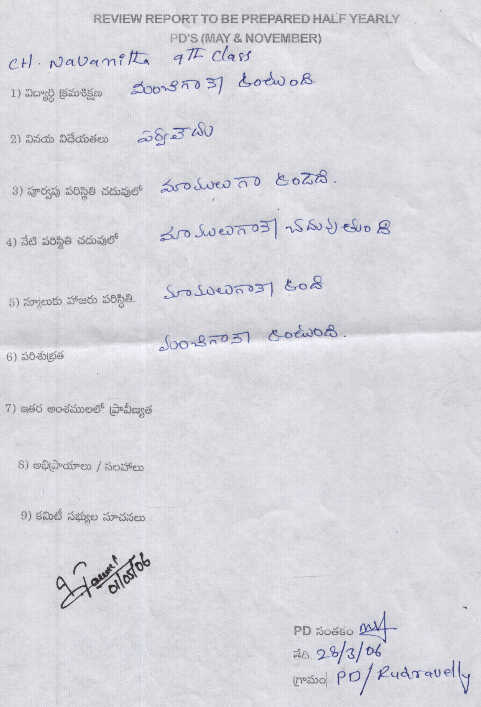 REVIEW REPORT TO BE PREPARED HALF YEARLY
PD'S (MAY & NOVEMBER)
CH. Navanitha 9th Class
1) విద్యార్థి క్రమశిక్షణ మంచిగానే ఉంటుంది
2) వినయ విధేయతలు పర్వాలేదు
3) పూర్వపు పరిస్థితి చదువులో మామూలుగా ఉండెది.
4) నేటి పరిస్థితి చదువులో మామూలుగానే చదువుతుంది
5) స్కూలుకు హాజరు పరిస్థితి. మామూలుగానే ఉంది
6) పరిశుభ్రత మంచిగానే ఉంటుంది.
7) ఇతర అంశములలో ప్రావీణ్యత
8) అభిప్రాయాలు / సలహాలు
9) కమిటీ సభ్యుల సూచనలు
01/05/06
PD సంతకం
తేది. 28/3/06
గ్రామం PD/Rudravelly